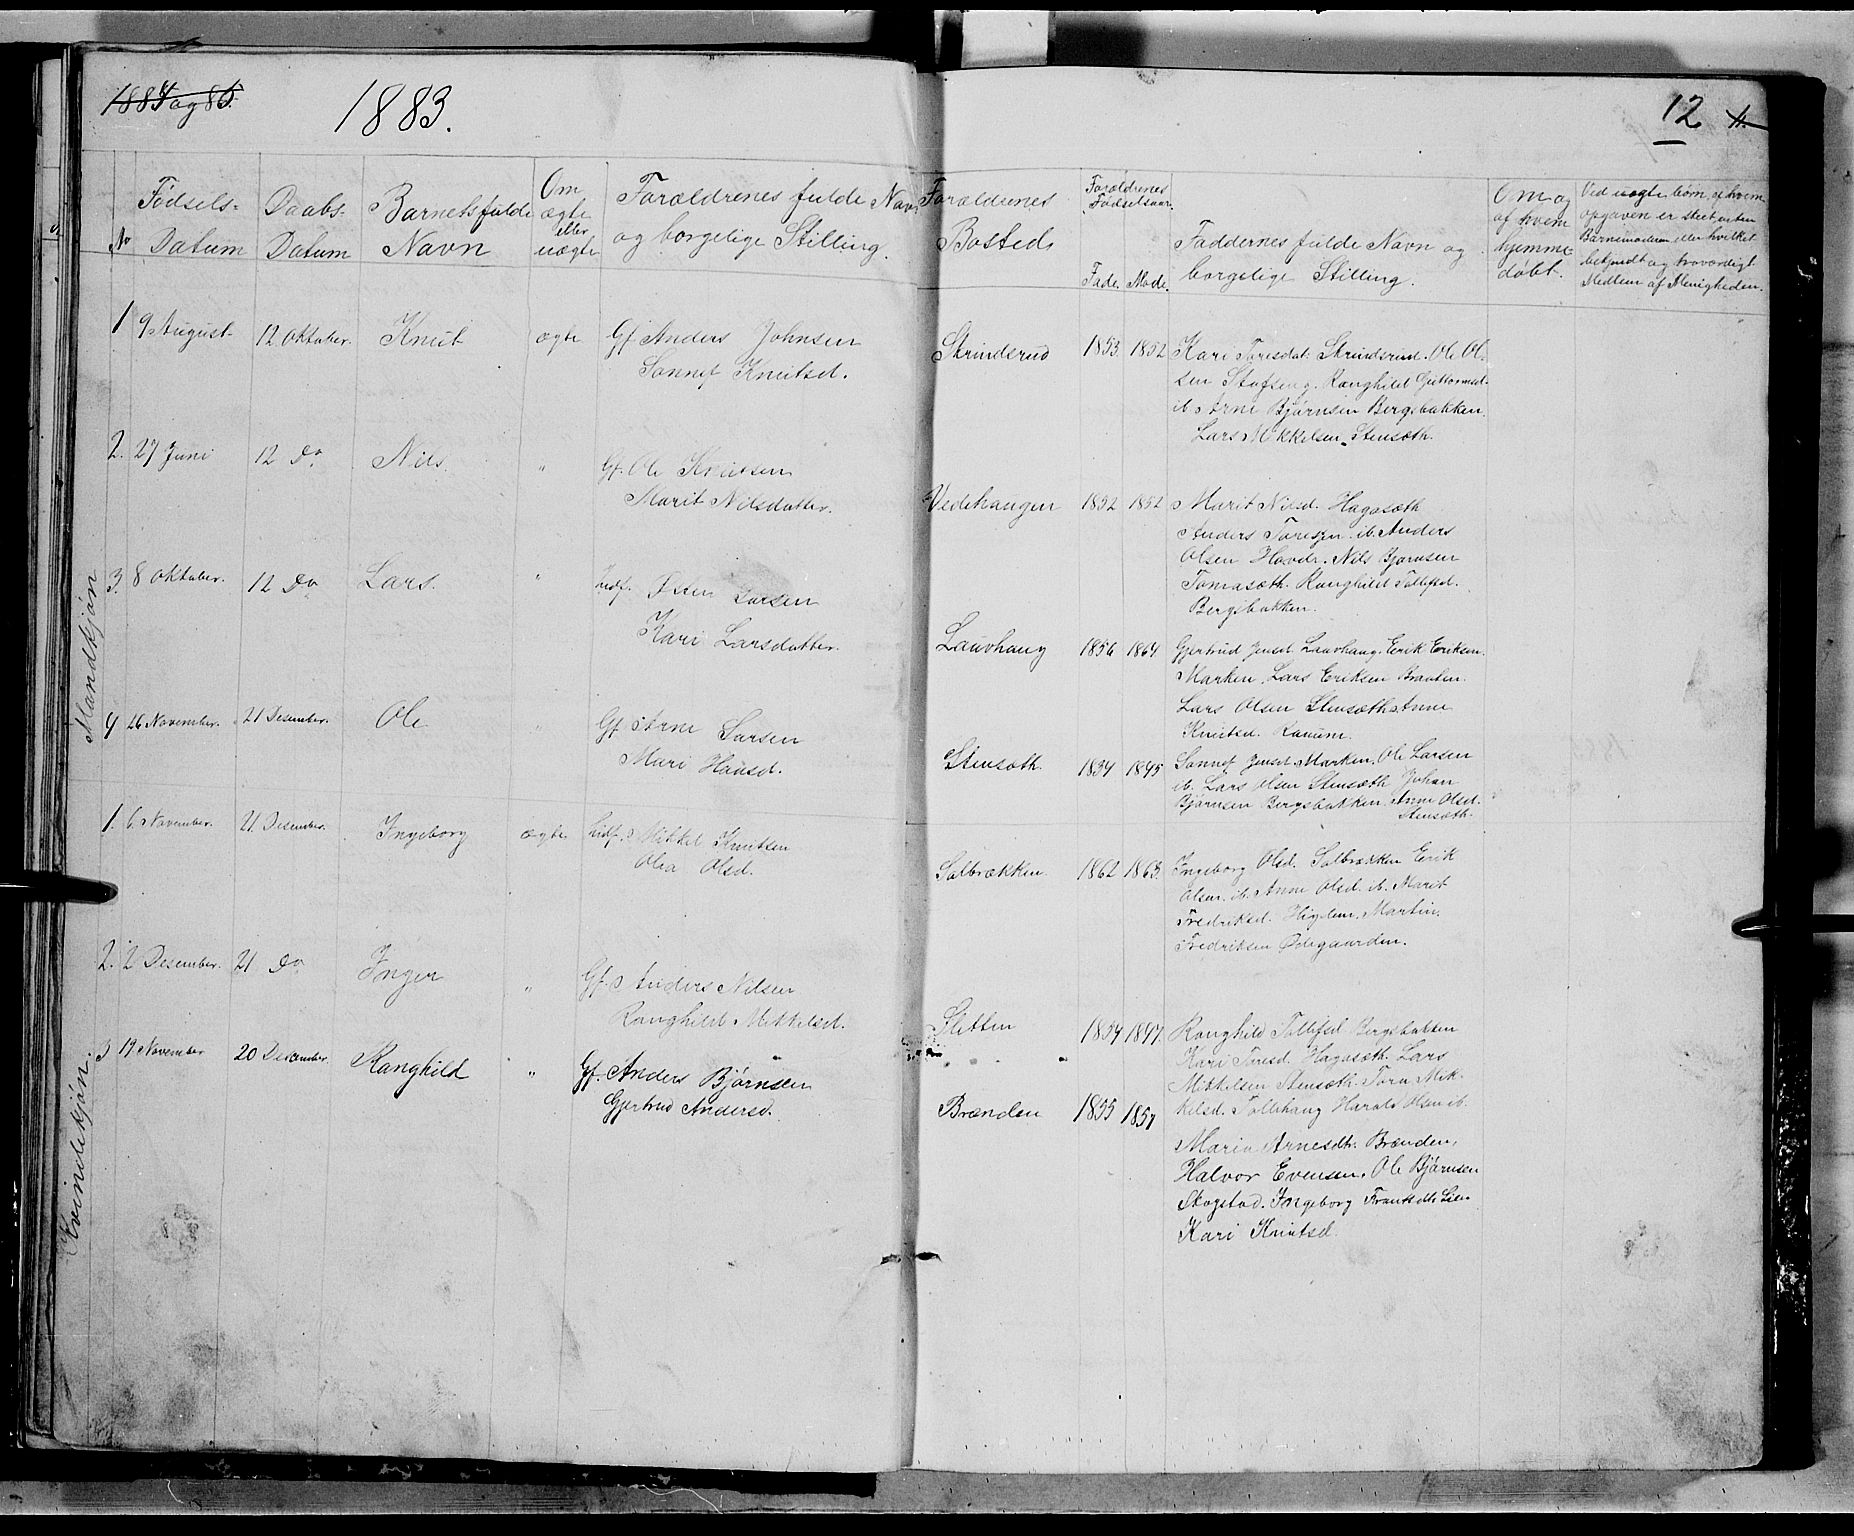 1884 og 85.
1883.
12 11.
No
Fødsels-
Datum
Daabs-
Datum
Barnets fulde
Navn
Om
ægte
eller
uægte
Forældrenes fulde Navn
og borgelige Stilling.
Forældrenes
Bosted
Forældrenes
Fødselsaar.
Fade. Mode.
Faddernes fulde Navn og
borgelige Stilling.
Om og
af hvem
hjemme-
døbt.
Ved uægte børn, af hvem
opgaven er skeet enten
Barnemoderen eller hvilket
bekjendt og troværdigt
Medlem af Menigheden.
Mandkjøn
1 9 August 12 Oktober. Knut ægte Gf Anders Johnsen
Sønnef Knutsd.
Strinderud 1853. 1852 Kari Toresdat. Strinderud. Ole Ol-
sen Stafseng. Ranghild Guttormsd.
ib. Arne Bjørnsen Bergsbakken.
Lars Mikkelsen Stensæth.
2. 27 Juni 12 Do Nils. " Gf. Ole Knutsen
Marit Nilsdatter.
Vedehaugen 1852 1852 Marit Nilsd. Hagasæth
Anders Toresen ib. Anders
Olsen Hovde. Nils Bjørnsen
Tomasæth. Ranghild Tollefsd.
Bergsbakken.
3. 8 Oktober. 12 Do Lars. " Indf. Østen Larsen
Kari Larsdatter.
Lauvhaug 1856 1864 Gjertrud Jensd. Lauvhaug. Erik Eriksen
Marken. Lars Eriksen Braaten.
Lars Olsen Stensæth. Anne
Knutsd. Ranum.
4 26 November. 21 Desember. Ole " Gf Arne Larsen
Mari Hansd.
Stensæth. 1834 1845 Sønnef Jensd. Marken. Ole Larsen
ib. Lars Olsen Stensæth Johan
Bjørnsen Bergsbakken. Anne Olsd.
Stensæth.
Kvindekjøn.
1. 6. November. 21 Desember. Ingeborg ægte Indf. Mikkel Knutsen
Olea Olsd.
Solbrækken 1862 1863. Ingeborg Olsd. Solbrækken Erik
Olsen. ib. Anne Olsd. ib. Marit
Fredriksd. Høgden. Martin
Fredriksen Ødegaarden.
2. 2 Desember. 21 Do Inger " Gf. Anders Nilsen
Ranghild Mikkelsd.
Sletten 1854 1847. Ranghild Tollefsd. Bergsbakken
Kari Toresd. Hagasæth. Lars
Mikkelsen Stensæth. Tora Mik-
kelsd. Tollehaug Harald Olsen ib.
3 19 November 20 Desember. Ranghild " Gf. Anders Bjørnsen
Gjertrud Andersd.
Brænden 1855 1857
Maria Arnesdtr. Brænden,
Halvor Evensen. Ole Bjørnsen
Skogstad. Ingeborg Frantsdtr. Lien
Kari Knutsd.